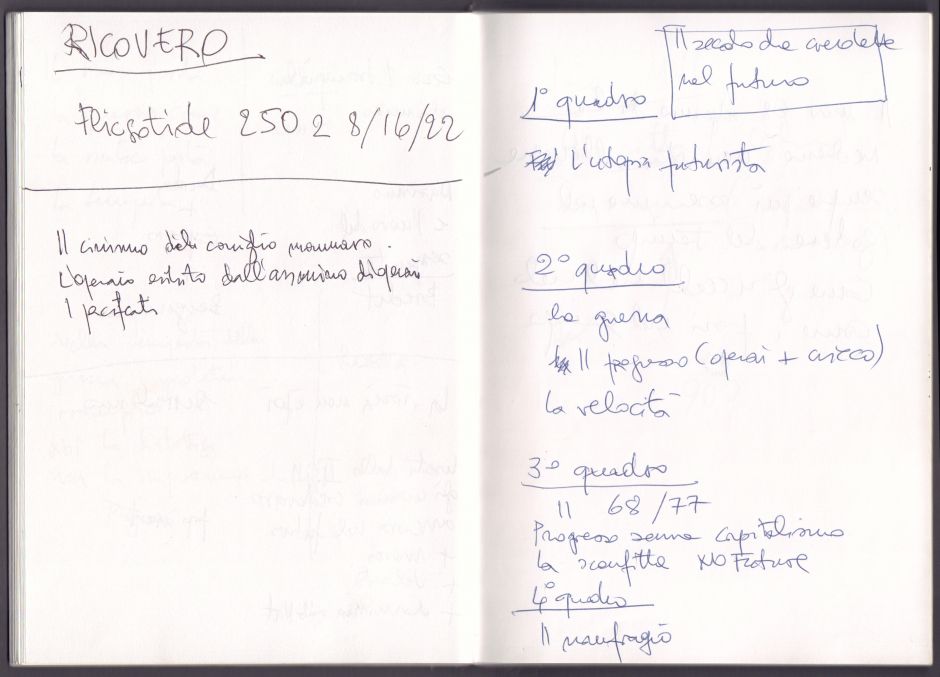 RICOVERO
250 2 8/16/22
Il cinismo del coniglio mannaro.
L'operaio esiste dall'assassinio di operai
I pacifisti
Il secolo che credette
nel futuro
1° quadro
L'utopia futurista
2° quadro
la guerra
Il progresso (operai + cricco)
la velocità
3° quadro
Il 68/77
Progresso senza capitalismo
la sconfitta NO Future
4° quadro
Il naufragio